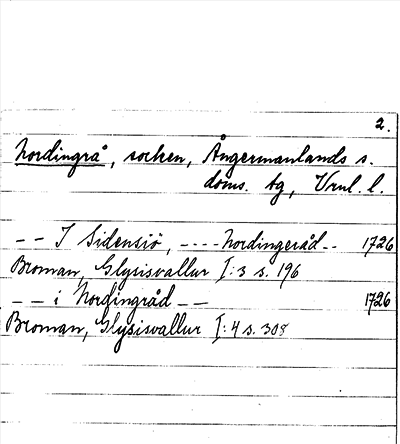 2.
Nordingrå, socken, Ångermanlands s.
doms. tg, Vrnl. l.
-- I Sidensiö, ---- Nordingeråd-- 1726
Broman, Glysisvallur I:3 s. 196
-- i Nordingråd -- 1726
Broman, Glysisvallur I:4 s. 308